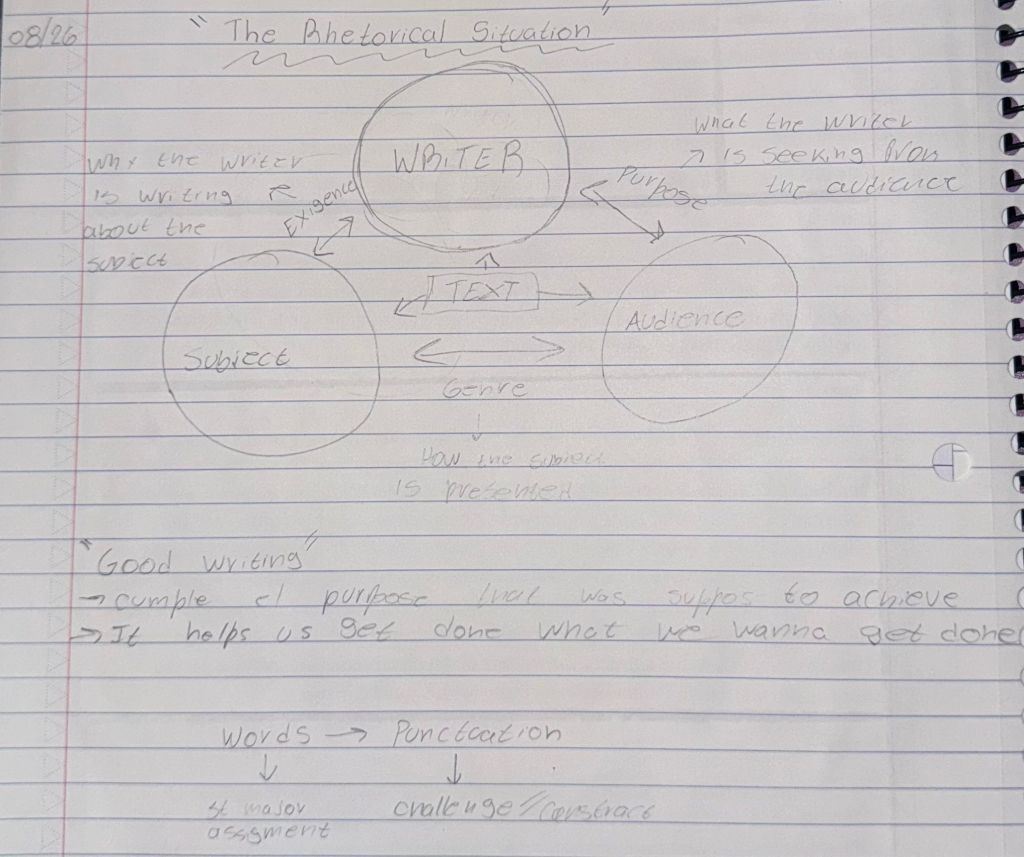 08/26
"The Rhetorical Situation"
WRITER
Why the writer
is writing
about the
subject
Exigence
What the writer
is seeking from
the audience
Purpose
TEXT
Subject
Audience
Genre
How the subject
is presented
"Good writing"
→ cumple el purpose that was suppos to achieve
→ It helps us get done what we wanna get done
words → Punctcation
major
assgment
challenge//